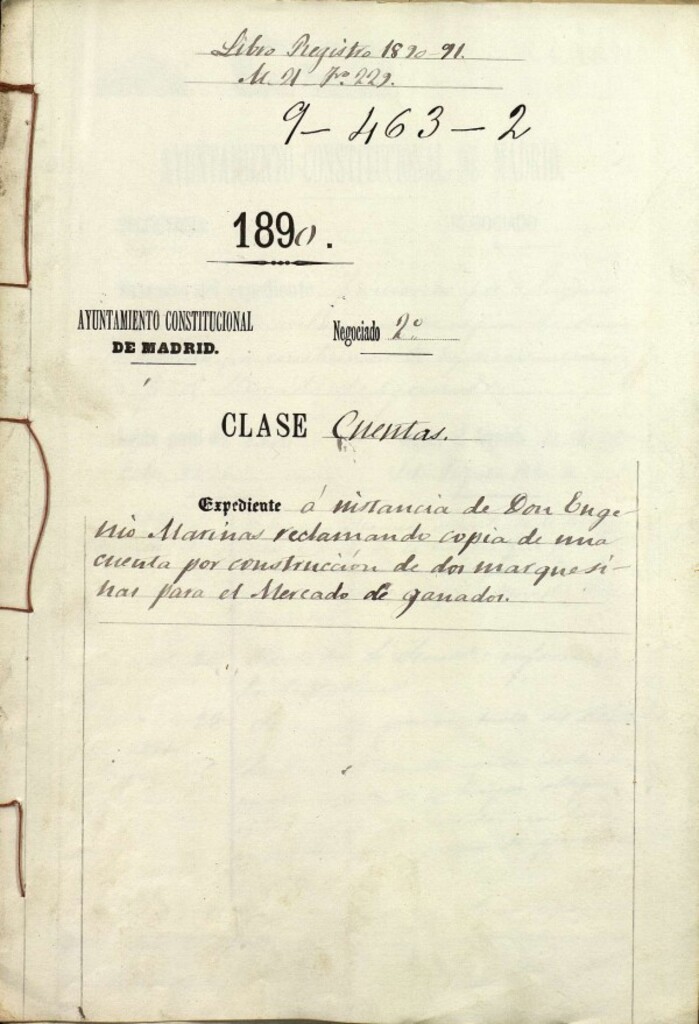 Libro Registro 1890-91.
M. 21 Fº 229.
9-463-2
1890.
AYUNTAMIENTO CONSTITUCIONAL
DE MADRID.
Negociado 2º
CLASE Cuentas.
Expediente á instancia de Don Euge-
nio Marinas reclamando copia de una
cuenta por construcción de dos marquesi-
nas para el Mercado de ganados.